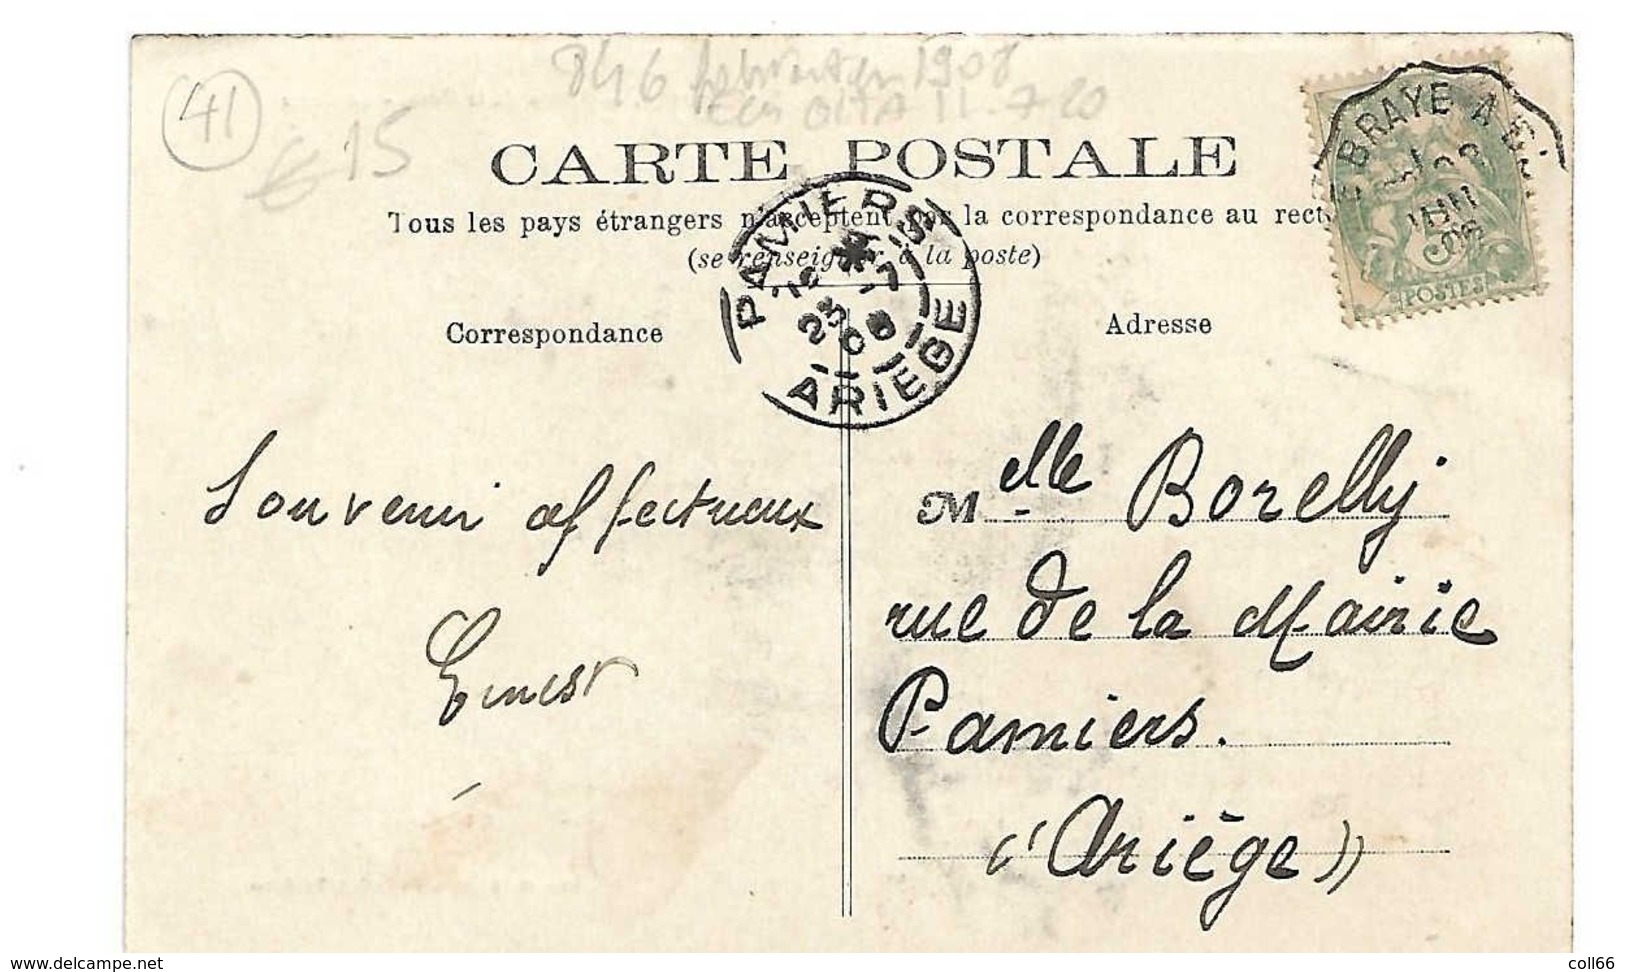 41
€ 15
846 1908
11-7 20
CARTE POSTALE
Tous les pays étrangers n'acceptent pas la correspondance au rect
(se renseigner à la poste)
EBRAYE A
POSTES
PAMIERS
23 -7
08
ARIEGE
Correspondance
Adresse
Souvenir affectueux
Ernest
Melle Borelly
rue de la Mairie
Pamiers.
(Ariège)
www.delcampe.net
coll66